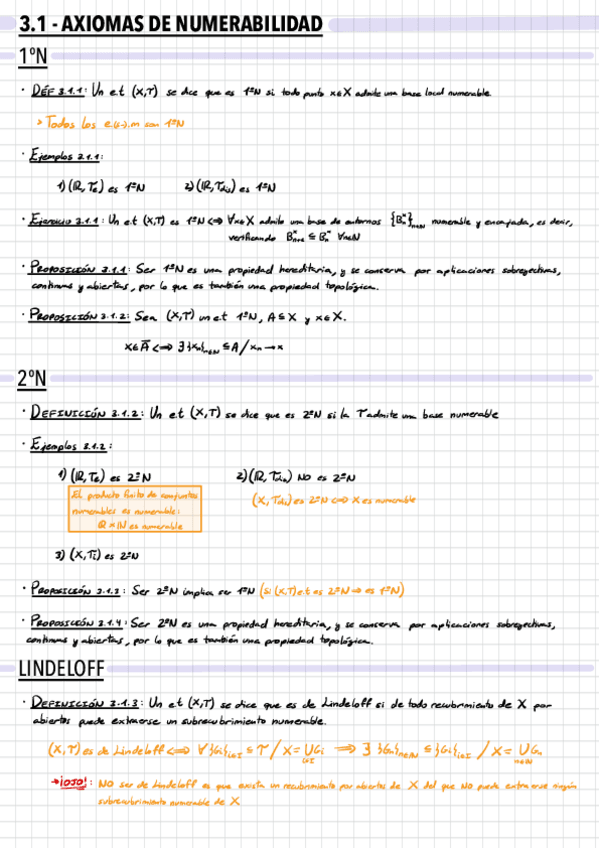 3.1 - AXIOMAS DE NUMERABILIDAD
1ºN
· DEF 3.1.1: Un e.t (X,T) se dice que es 1ºN si todo punto x∈X admite una base local numerable.
> Todos los e.(s-).m son 1ºN
· Ejemplos 3.1.1:
1) (ℝ, Te) es 1ºN 2) (ℝ, Tdis) es 1ºN
· Ejercicio 3.1.1: Un e.t (X,T) es 1ºN <=> ∀x∈X admite una base de entornos {Bₙˣ}n∈ℕ numerable y encajada, es decir,
verificando Bₙ₊₁ˣ ⊆ Bₙˣ ∀n∈ℕ
· PROPOSICIÓN 3.1.1: Ser 1ºN es una propiedad hereditaria, y se conserva por aplicaciones sobreyectivas,
continuas y abiertas, por lo que es también una propiedad topológica.
· PROPOSICIÓN 3.1.2: Sea (X,T) un e.t 1ºN, A⊆X y x∈X.
x∈A̅ <=> ∃ {xₙ}n∈ℕ ⊆ A / xₙ → x
2ºN
· DEFINICIÓN 3.1.2: Un e.t (X,T) se dice que es 2ºN si la T admite una base numerable
· Ejemplos 3.1.2:
1) (ℝ, Te) es 2ºN 2) (ℝ, Tdis) NO es 2ºN
El producto finito de conjuntos
numerables es numerable:
ℚ×ℕ es numerable
(X, Tdis) es 2ºN <=> X es numerable
3) (X, Ti) es 2ºN
· PROPOSICIÓN 3.1.3: Ser 2ºN implica ser 1ºN (si (X,T) e.t es 2ºN => es 1ºN)
· PROPOSICIÓN 3.1.4: Ser 2ºN es una propiedad hereditaria, y se conserva por aplicaciones sobreyectivas,
continuas y abiertas, por lo que es también una propiedad topológica.
LINDELOFF
· DEFINICIÓN 3.1.3: Un e.t (X,T) se dice que es de Lindeloff si de todo recubrimiento de X por
abiertos puede extraerse un subrecubrimiento numerable.
(X,T) es de Lindeloff <=> ∀ {Gi}i∈I ⊆ T / X = ∪Gi i∈I => ∃ {Gn}n∈ℕ ⊆ {Gi}i∈I / X = ∪Gn n∈ℕ
→ ¡OJO!: NO ser de Lindeloff es que exista un recubrimiento por abiertos de X del que NO puede extraerse ningún
subrecubrimiento numerable de X